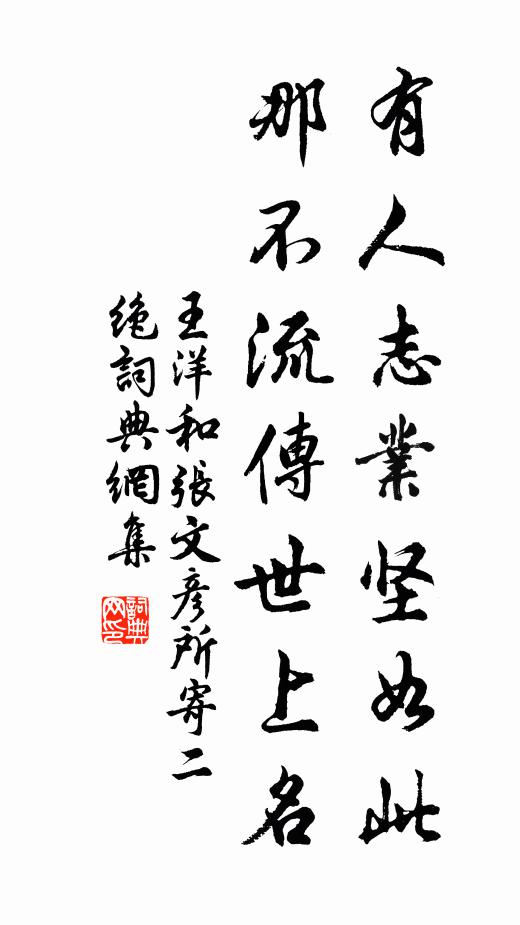 有人志業坚如此
那不流傳世上名
王洋和張文彦所寄二
绝詞典網集
詞典网印